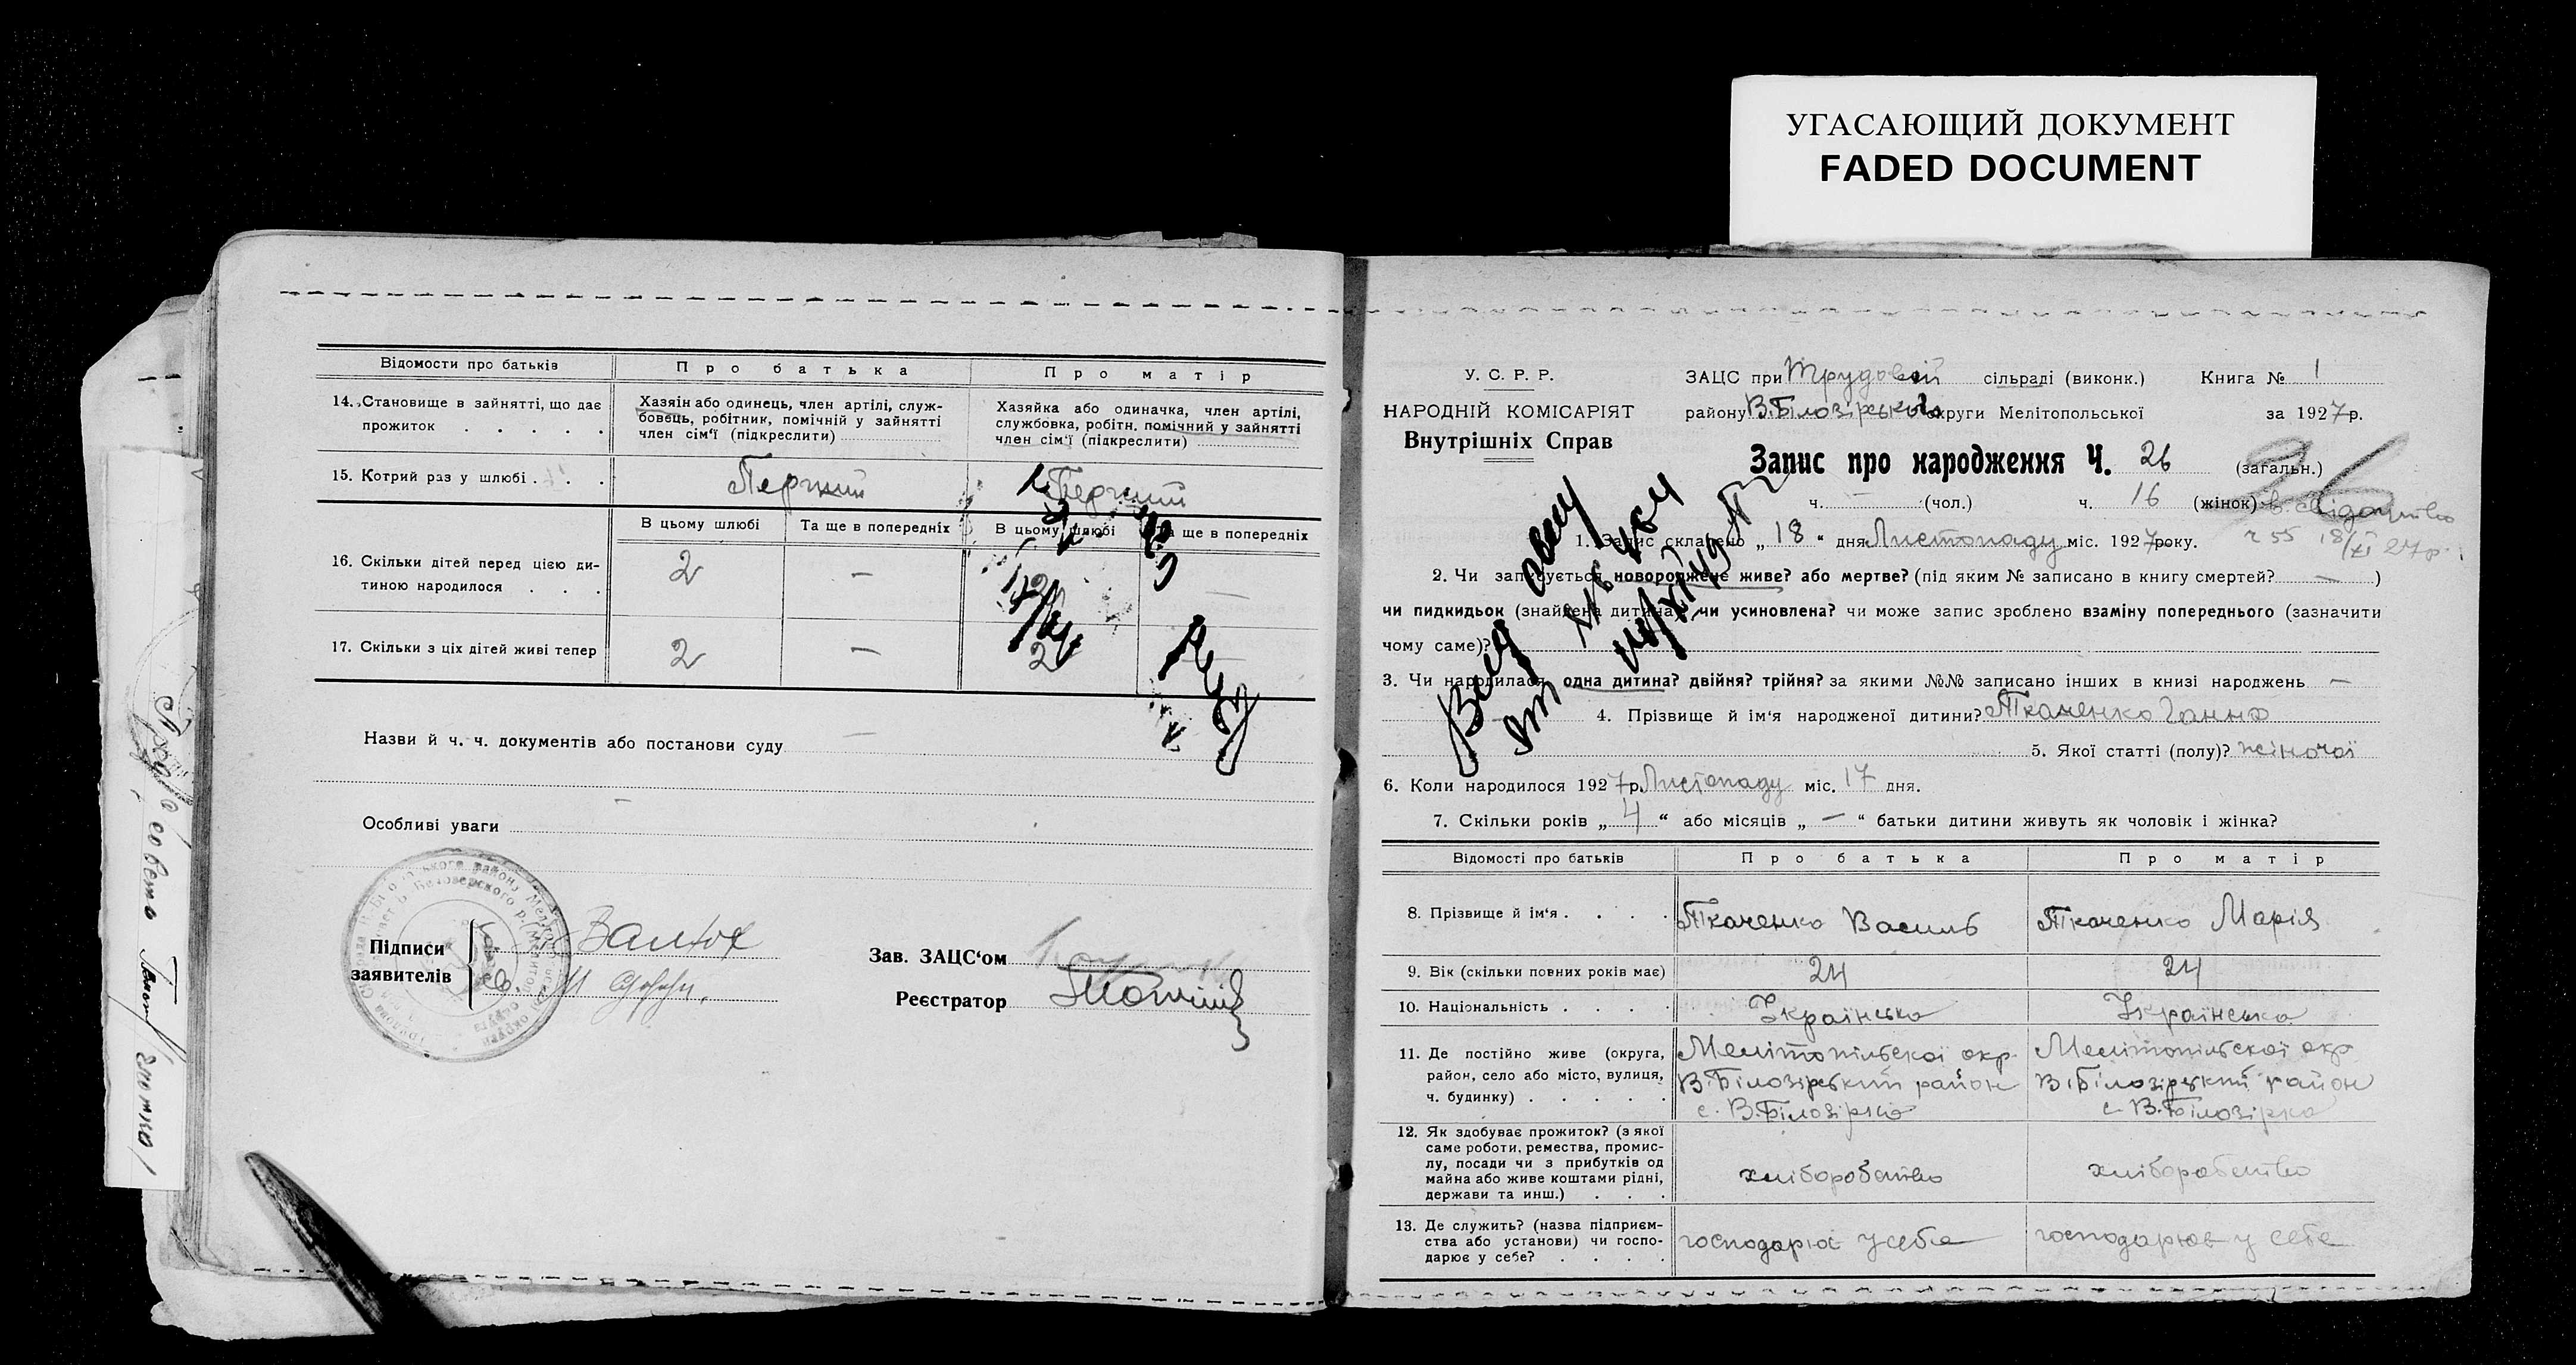 УГАСАЮЩИЙ ДОКУМЕНТ
FADED DOCUMENT
Відомости про батьків
Про батька
Про матір
14. Становище в зайнятті, що дає прожиток
Хазяїн або одинець, член артілі, служ-
бовець, робітник, помічній у зайнятті
член сім'ї (підкреслити)
Хазяйка або одиначка, член артілі,
службовка, робітн. помічний у зайнятті
член сім'ї (підкреслити)
15. Котрий раз у шлюбі
Перший
Перший
В цьому шлюбі
Та ще в попередніх
В цьому шлюбі
Та ще в попередніх
16. Скільки дітей перед цією ди-
тиною народилося
2 —
17. Скільки з ціх дітей живі тепер
2 — 2
Назви й ч. ч. документів або постанови суду —
Особливі уваги
Підписи
заявителів
Зав. ЗАЦС'ом
Реєстратор
У. С. Р. Р.
НАРОДНІЙ КОМІСАРІЯТ
Внутрішніх Справ
ЗАЦС при Трудовій сільраді (виконк.) Книга № 1
району В.Білозірської округи Мелітопольської за 1927 р.
Запис про народження Ч. 26 (загальн.)
26
ч. — (чол.) ч. 16 (жінок)
1. Запис складено „18" дня Листопаду міс. 1927 року.
18/XI 27 р.
2. Чи записується новороджене живе? або мертве? (під яким № записано в книгу смертей? — )
чи пидкидьок (знайдена дитина), чи усиновлена? чи може запис зроблено взаміну попереднього (зазначити
чому саме)?
3. Чи народилась одна дитина? двійня? трійня? за якими №№ записано інших в книзі народжень —
4. Прізвище й ім'я народженої дитини? Ткаченко Ганна
5. Якої статті (полу)? жіночої
6. Коли народилося 1927 р. Листопаду міс. 17 дня.
7. Скільки років „4" або місяців „—" батьки дитини живуть як чоловік і жінка?
Відомості про батьків
Про батька
Про матір
8. Прізвище й ім'я
Ткаченко Василь
Ткаченко Марія
9. Вік (скільки повних років має)
24
24
10. Національність
Українська
Українська
11. Де постійно живе (округа,
район, село або місто, вулиця,
ч. будинку)
Мелітопільскої окр.
В.Білозірський район
с. В.Білозірка
Мелітопільскої окр
В.Білозірський район
с. В.Білозірка
12. Як здобуває прожиток? (з якої
саме роботи, ремества, промис-
лу, посади чи з прибутків од
майна або живе коштами рідні,
держави та инш.)
хліборобство
хліборобство
13. Де служить? (назва підприєм-
ства або установи) чи госпо-
дарює у себе?
господарює у себе
господарює у себе